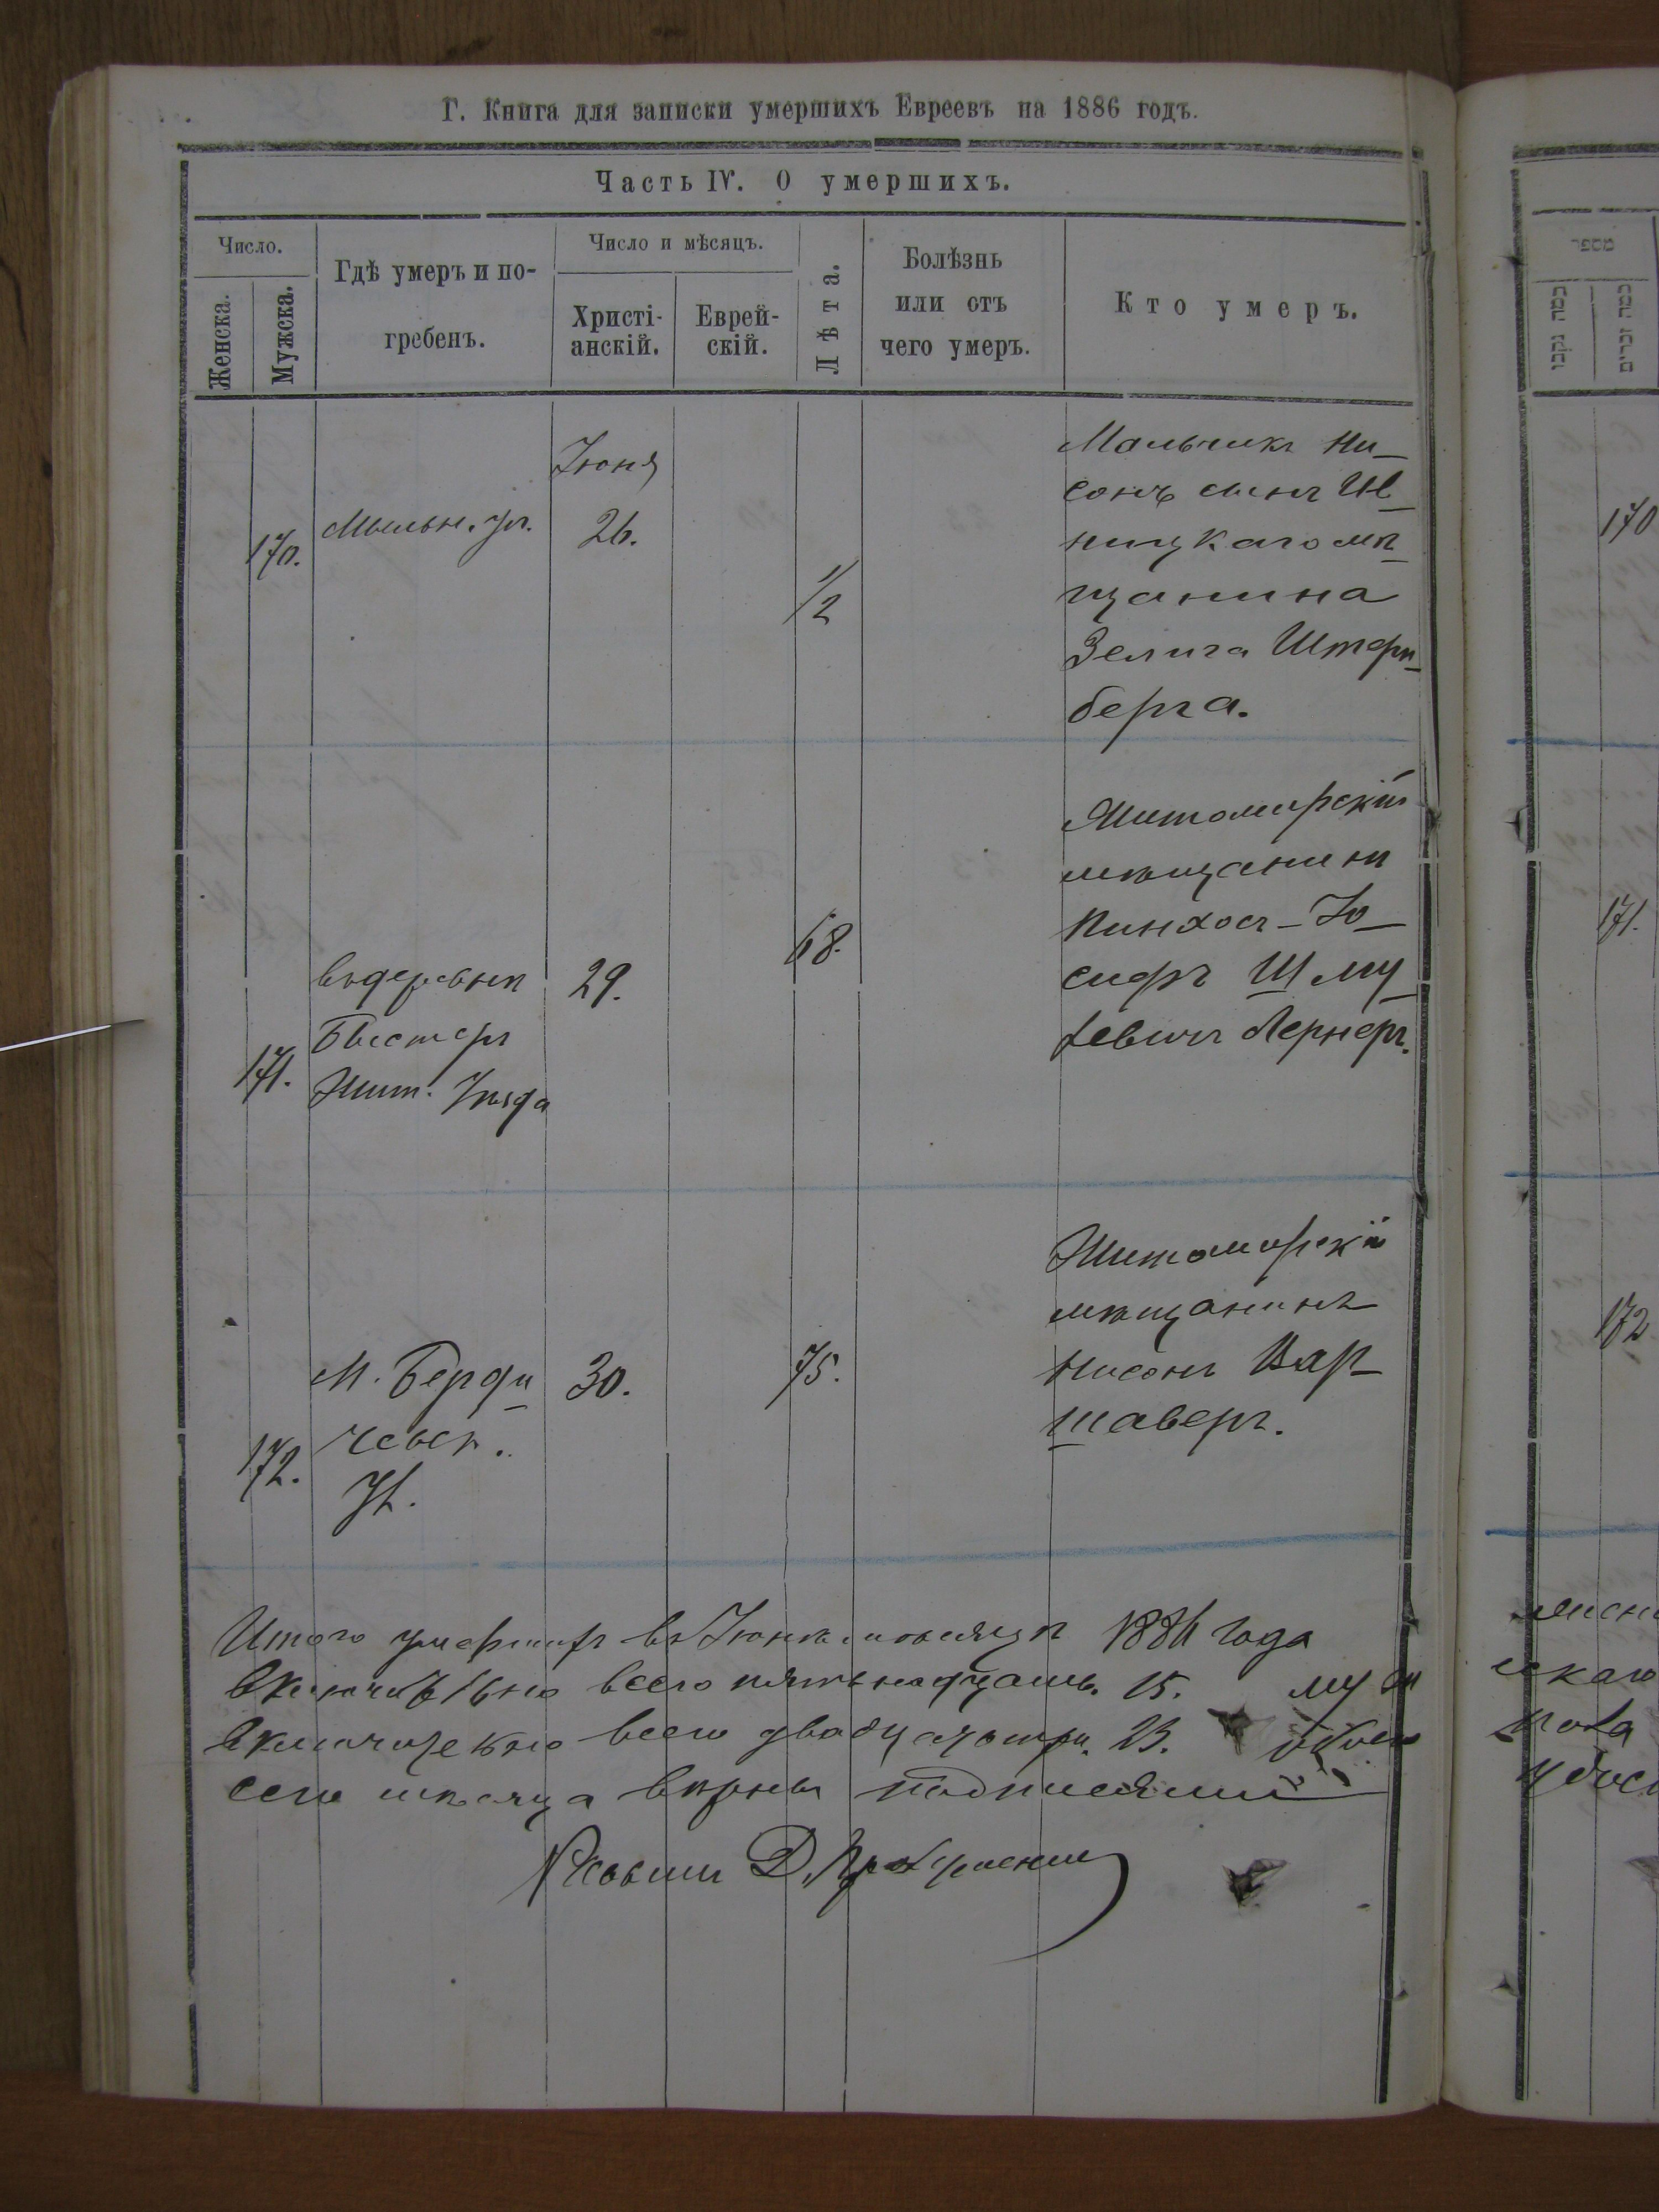 Г. Книга для записки умершихъ Евреевъ на 1886 годъ.
Часть IV. О умершихъ.
Число.
Женска.
Мужска.
Гдѣ умеръ и по-
гребенъ.
Число и мѣсяцъ.
Христі-
анскій.
Еврей-
скій.
Лѣта.
Болѣзнь
или отъ
чего умеръ.
Кто умеръ.
170.
Мыльн. ул.
Іюня
26.
1/2
Мальчикъ Ни-
сонъ сынъ
ницкаго мѣ-
щанина
Зелига Штерн-
берга.
171.
въ деревнѣ
Жит. Уѣзда
29.
68.
Житомирскій
мѣщанинъ
Пинхосъ-Іо-
сифъ Шму
левичъ Лернеръ.
172.
М. Берди
чевск.
ул.
30.
75.
Житомирскій
мѣщанинъ
Нисонъ Вар-
шаверъ.
Итого умершихъ въ Іюнѣ мѣсяцѣ 1886 года
включительно всего пятьнадцать. 15. муж
включительно всего двадцать три. 23. обоего
сего мѣсяца вѣрны подписями
170
171.
172